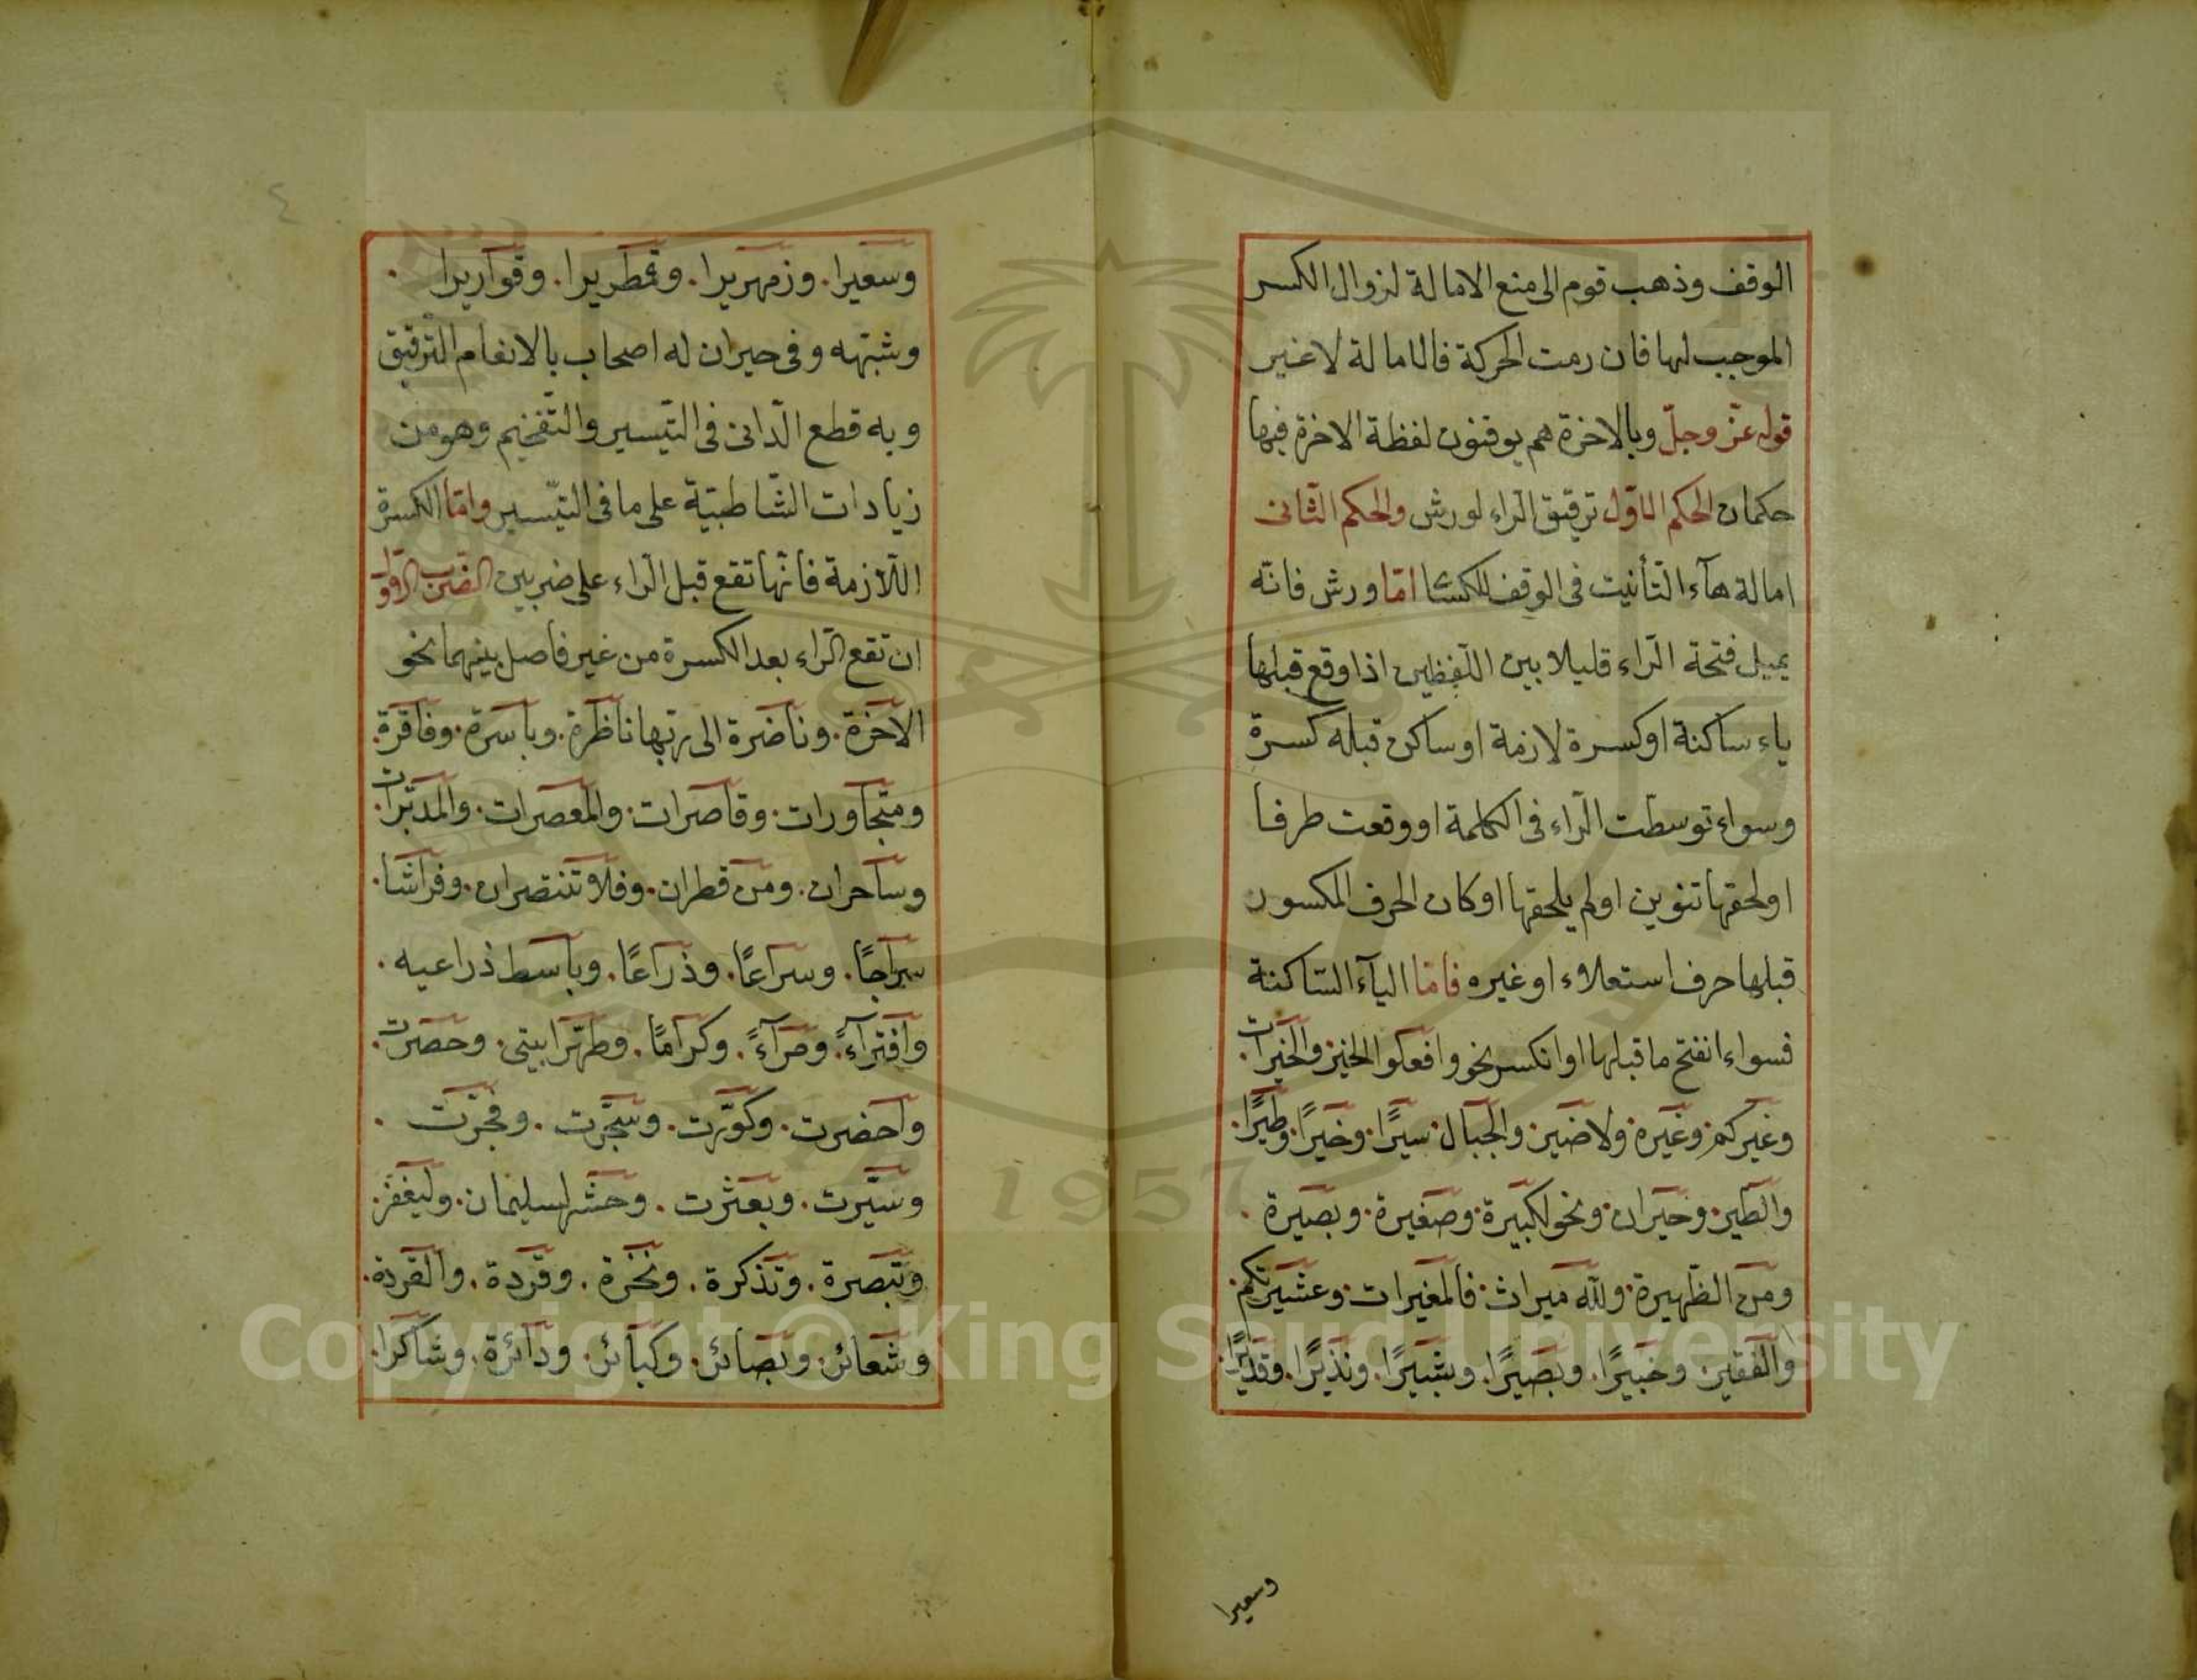 الوقف وذهب قوم الى منع الامالة لزوال الكسر
الموجب لها فان رمت الحركة فالامالة لا غير
قوله عزّ وجلّ وبالاخرة هم يوقنون لفظة الاخرة فيها
حكمان الحكم الاوّل ترقيق الرّاء لورش والحكم الثّانى
امالة هآء التّأنيث فى الوقف للكسائى امّا ورش فانّه
يميل فتحة الرّاء قليلا بين اللّفظين اذا وقع قبلها
ياء ساكنة او كسرة لازمة او ساكن قبله كسرة
وسواء توسطّت الرّاء فى الكلمة او وقعت طرفا
او لحقها تنوين او لم يلحقها او كان الحرف المكسور
قبلها حرف استعلاء او غيره فامّا اليآء السّاكنة
فسواء انفتح ما قبلها او انكسر نحو وافعلوا الخير. والخيرات.
وغيركم. وغيره. ولا ضير. والجبال سيرًا. وخيرًا. وطيرًا.
والطير. وحيران. ونحو لكبيرة. وصغيرة. وبصيرة.
ومن الظّهيرة. ولله ميراث. فالمغيرات. وعشيرتكم.
والفقير. وخبيرًا. وبصيرًا. وبشيرًا. ونذيرًا. وقديرًا.
وسعيرا
٤
وسعيرا. وزمهريرا. وقمطريرا. وقواريرا.
وشبهه وفى حيران له اصحاب بالانعام الترقيق
وبه قطع الدّانى فى التّيسير والتّفخيم وهو من
زيادات الشّاطبيّة على ما فى التّيسير وامّا الكسرة
اللّازمة فانّها تقع قبل الرّاء على ضربين الضرب الاوّل
ان تقع الرّاء بعد الكسرة من غير فاصل بينهما نحو
الآخرة. وناضرة الى ربها ناظرة. وباسرة. وفاقرة.
ومتجاورات. وقاصرات. والمعصرات. والمدبّرات.
وساحران. ومن قطران. وفلا تنتصران. وفراشا.
سراجًا. وسراعًا. وذراعًا. وباسط ذراعيه.
وافترآءً. ومرآءً. وكرامًا. وطهّرا بيتى. وحصرت.
واحضرت. وكوّرت. وسجّرت. وفجّرت.
وسيّرت. وبعثرت. وحشر لسليمان. وليغفر.
وتبصرة. وتذكرة. ونخرة. وقردة. والقردة.
وشعائر. وبصائر. وكبائر. ودائرة. وشاكرا.
Copyright © King Saud University
1957